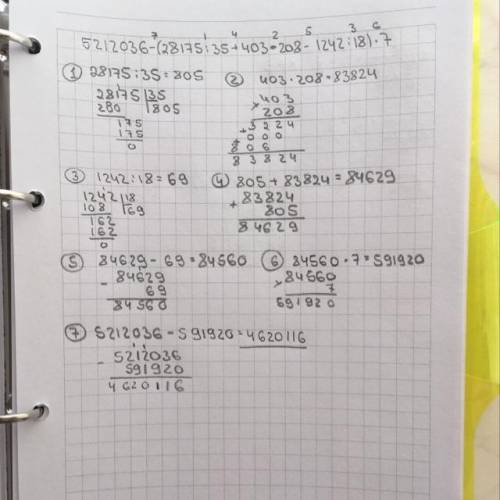 7 1 4 2 5 3 6
5212036-(28175:35+403•208-1242:18)•7
① 28175:35=805
28175|35
280 |805
175
175
0
② 403·208=83824
×403
208
+3224
000
806
83824
③ 1242:18=69
1242|18
108 |69
162
162
0
④ 805+83824=84629
+83824
805
84629
⑤ 84629-69=84560
-84629
69
84560
⑥ 84560·7=591920
×84560
7
591920
⑦ 5212036-591920=4620116
-5212036
591920
4620116